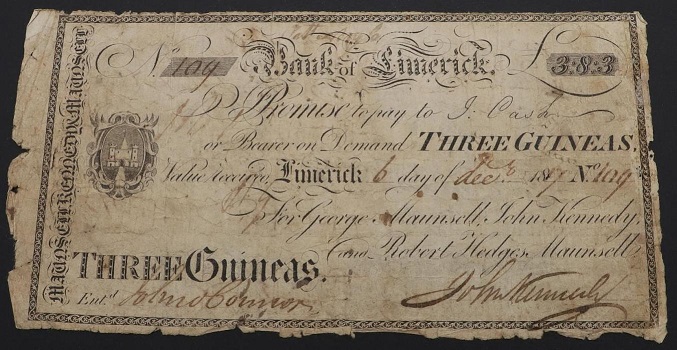 MAUNSELL KENNEDY & MAUNSELL
No 109 Bank of Limerick. £3:8:3
I Promise to pay to J. Cash
or Bearer on Demand THREE GUINEAS.
Value received. Limerick 6 day of Decr 18 No 109
For George Maunsell, John Kennedy,
and Robert Hedges Maunsell
THREE Guineas.
Entd John O Connor John Kennedy